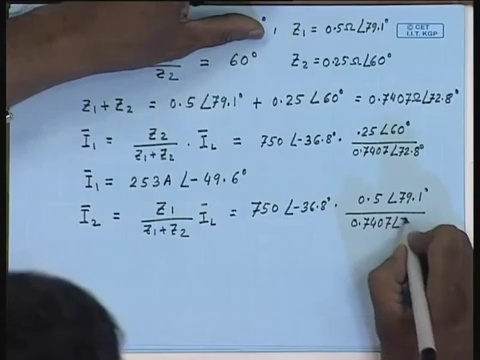 °, Z₁ = 0.5Ω∠79.1°
© CET
I.I.T. KGP
Z₂ = 60° Z₂ = 0.25Ω∠60°
Z₁ + Z₂ = 0.5∠79.1° + 0.25∠60° = 0.7407Ω∠72.8°
Ī₁ = Z₂/(Z₁+Z₂) · Ī_L = 750∠-36.8° · .25∠60°/0.7407∠72.8°
Ī₁ = 253A∠-49.6°
Ī₂ = Z₁/(Z₁+Z₂) Ī_L = 750∠-36.8° · 0.5∠79.1°/0.7407∠7